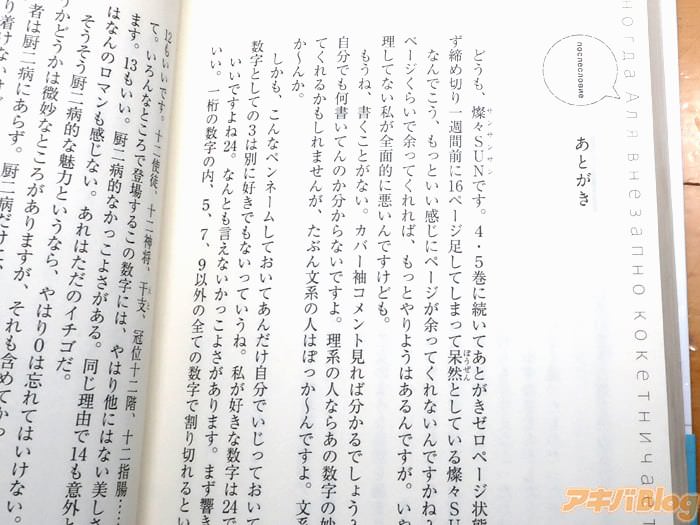 иногда Аля внезапно кокетничает
послесловие
あとがき
どうも、燦々SUNです。4・5巻に続いてあとがきゼロページ状態
サンサンサン
ず締め切り一週間前に16ページ足してしまって呆然としている燦々SU
ぼうぜん
なんでこう、もっといい感じにページが余ってくれないんですかね?
ページくらいで余ってくれれば、もっとやりようはあるんですが。いや
理してない私が全面的に悪いんですけども。
もうね、書くことがない。カバー袖コメント見れば分かるでしょう?
自分でも何書いてんのか分からないですよ。理系の人ならあの数字の妙
てくれるかもしれませんが、たぶん文系の人はぽっか〜んですよ。文系
か〜んか。
しかも、こんなペンネームしておいてあんだけ自分でいじっておいて
数字としての3は別に好きでもないっていうね。私が好きな数字は24で
いいですよね24。なんとも言えないかっこよさがあります。まず響き
いい。一桁の数字の内、5、7、9以外の全ての数字で割り切れるとい
12もいいです。十二使徒、十二神将、干支、冠位十二階、十二指腸……
て。いろんなところで登場するこの数字には、やはり他にはない美しさ
ます。13もいい。厨二病的なかっこよさがある。同じ理由で14も意外と
はなんのロマンも感じない。あれはただのイチゴだ。
そうそう厨二病的な魅力というなら、やはり0は忘れてはいけない。
うかどうかは微妙なところがありますが、それも含めてかっ
者は厨二病にあらず。厨二病だけに、
り着けないけど
アキバBlog